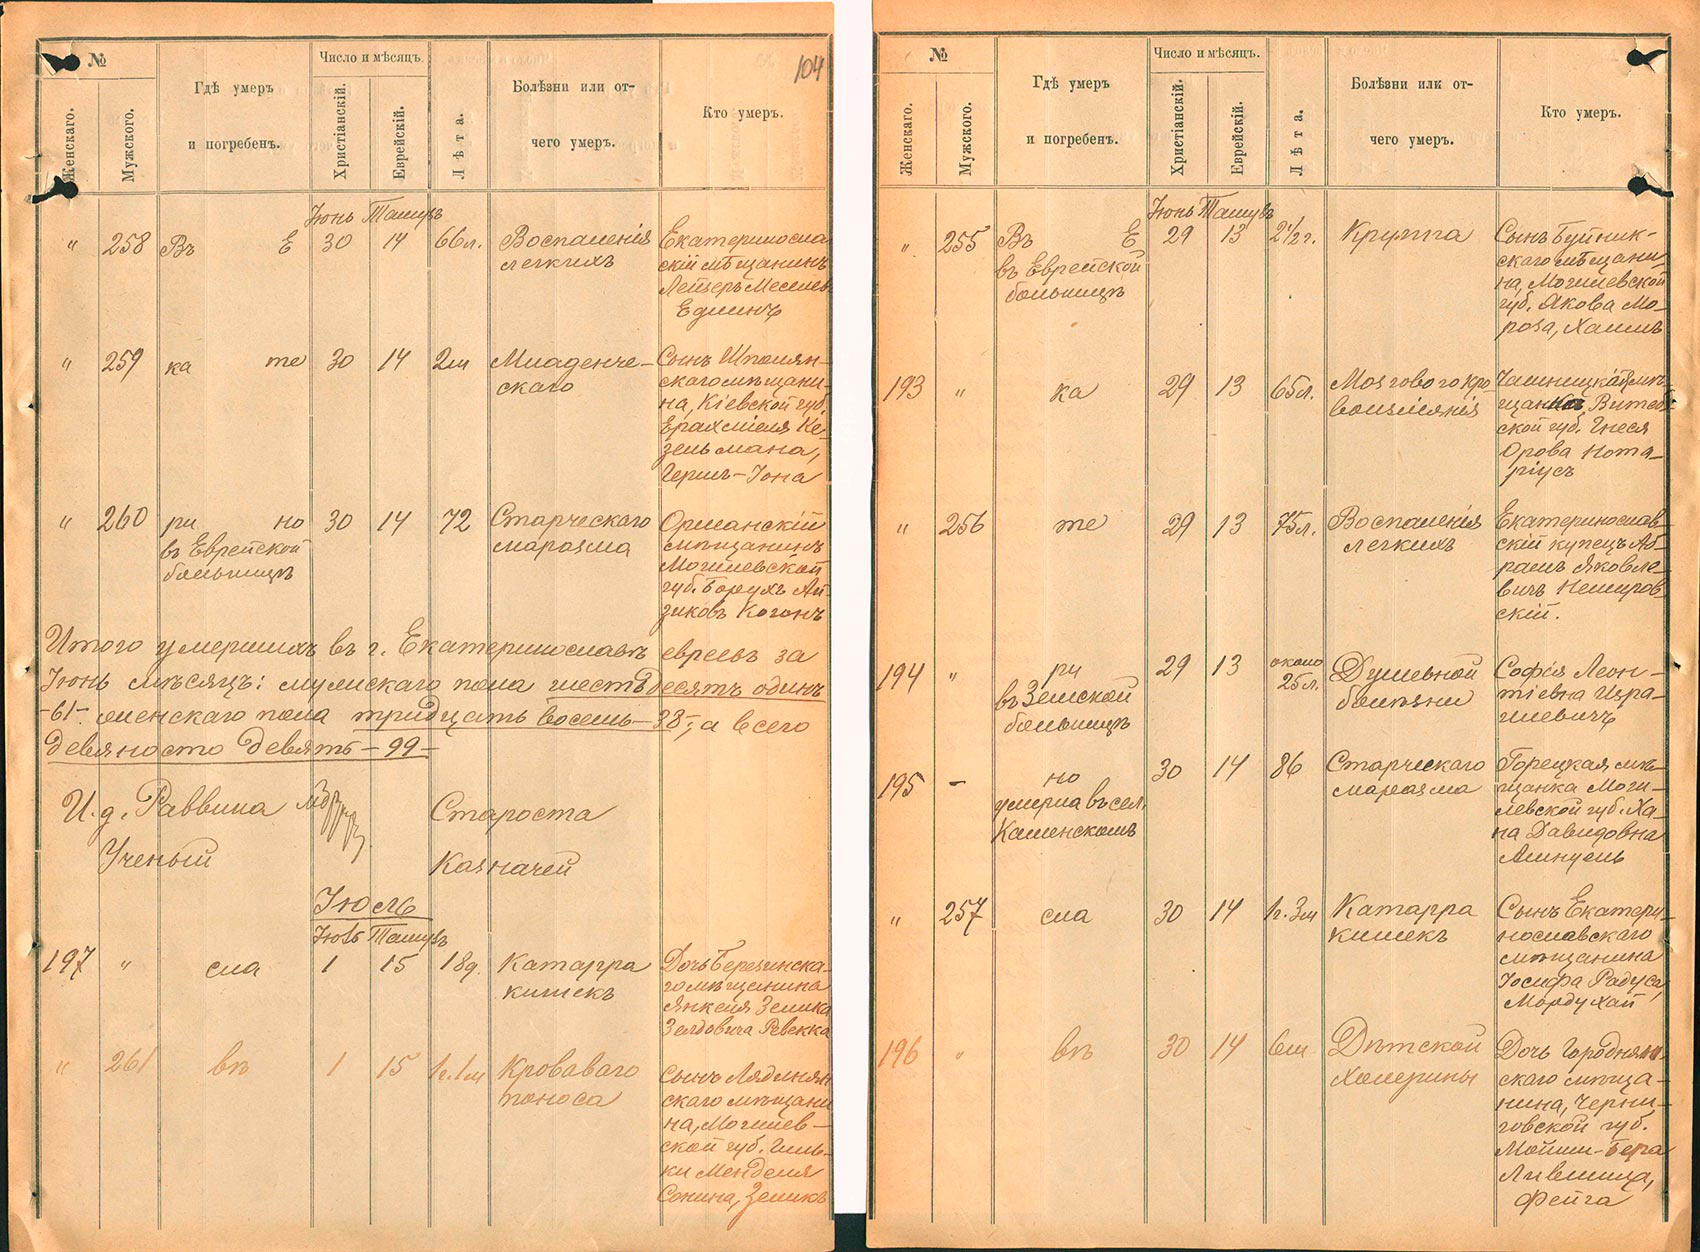 104
№
Женскаго.
Мужского.
Гдѣ умеръ
и погребенъ.
Число и мѣсяцъ.
Христіанскій.
Еврейскій.
Лѣта.
Болѣзни или от-
чего умеръ.
Кто умеръ.
Іюнь Тамузъ
" 258 Въ Е 30 14 66л. Воспаленія
легкихъ
Екатериносла
скій мѣщанинъ
Лейзеръ
" 259 ка те 30 14 2м Младенче-
скаго
Сынъ Шполян-
скаго мѣщани-
на, Кіевской губ.
Ерахміеля Ке-
зельмана,
Гершъ-Іона
" 260 ри но 30 14 72 Старческаго
маразма
въ Еврейской
больницѣ
Оршанскій
мѣщанинъ
Могилевской
губ. Борухъ Ай-
зиковъ Коганъ
Итого умершихъ въ г. Екатеринославѣ евреевъ за
Іюнь мѣсяцъ: мужскаго пола шестьдесятъ одинъ
-61- женскаго пола тридцать восемь -38-, а всего
девяносто девять -99-
И. д. Раввина Староста
Ученый Казначей
Іюль
Іюль Тамузъ
197 " сла 1 15 18д. Катарра
кишекъ
Дочь Березинска-
го мѣщанина
Янкеля Зелика
Зелдовича Ревекка
" 261 вѣ 1 15 1г.1м Кроваваго
поноса
Сынъ Лядянян
скаго мѣщани
на, Могилев-
ской губ. Гиль-
ки Менделя
Сонина, Зеликъ
№
Женскаго.
Мужского.
Гдѣ умеръ
и погребенъ.
Число и мѣсяцъ.
Христіанскій.
Еврейскій.
Лѣта.
Болѣзни или от-
чего умеръ.
Кто умеръ.
Іюнь Тамузъ
" 255 Въ Е 29 13 2½г. Круппа
въ Еврейской
больницѣ
Сынъ Буйник-
скаго мѣщани-
на, Могилевской
губ. Якова Мо-
роза, Хаимъ
193 " ка 29 13 65л. Мозгового кро
воизліянія
Чашницкая мѣ-
щанка Витеб-
ской губ. Гнеся
Орова Нота-
ріусъ
" 256 те 29 13 75л. Воспаленія
легкихъ
Екатеринослав-
скій купецъ Аб-
рамъ Яковле-
вичъ Немиров-
скій.
194 " ри 29 13 около
25л. Душевной
болѣзни
въ Земской
больницѣ
Софія Леон-
тіевна Изра-
илевичъ
195 - но 30 14 86 Старческаго
маразма
умерла въ сел.
Каменскомъ
Горецкая мѣ-
щанка Моги-
левской губ. Ха-
на Давидовна
" 257 сла 30 14 1г.3м Катарра
кишекъ
Сынъ Екатери-
нославскаго
мѣщанина
Іосифа Радуса,
Мордухай
196 " вѣ 30 14 6м Дѣтской
холерины
Дочь Городнян-
скаго мѣща-
нина, Черни-
говской губ.
Мойши-Бера
Лившица,
Фейга